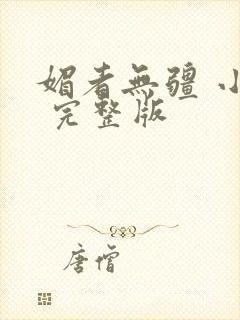 媚者無疆 小
完整版
唐僧